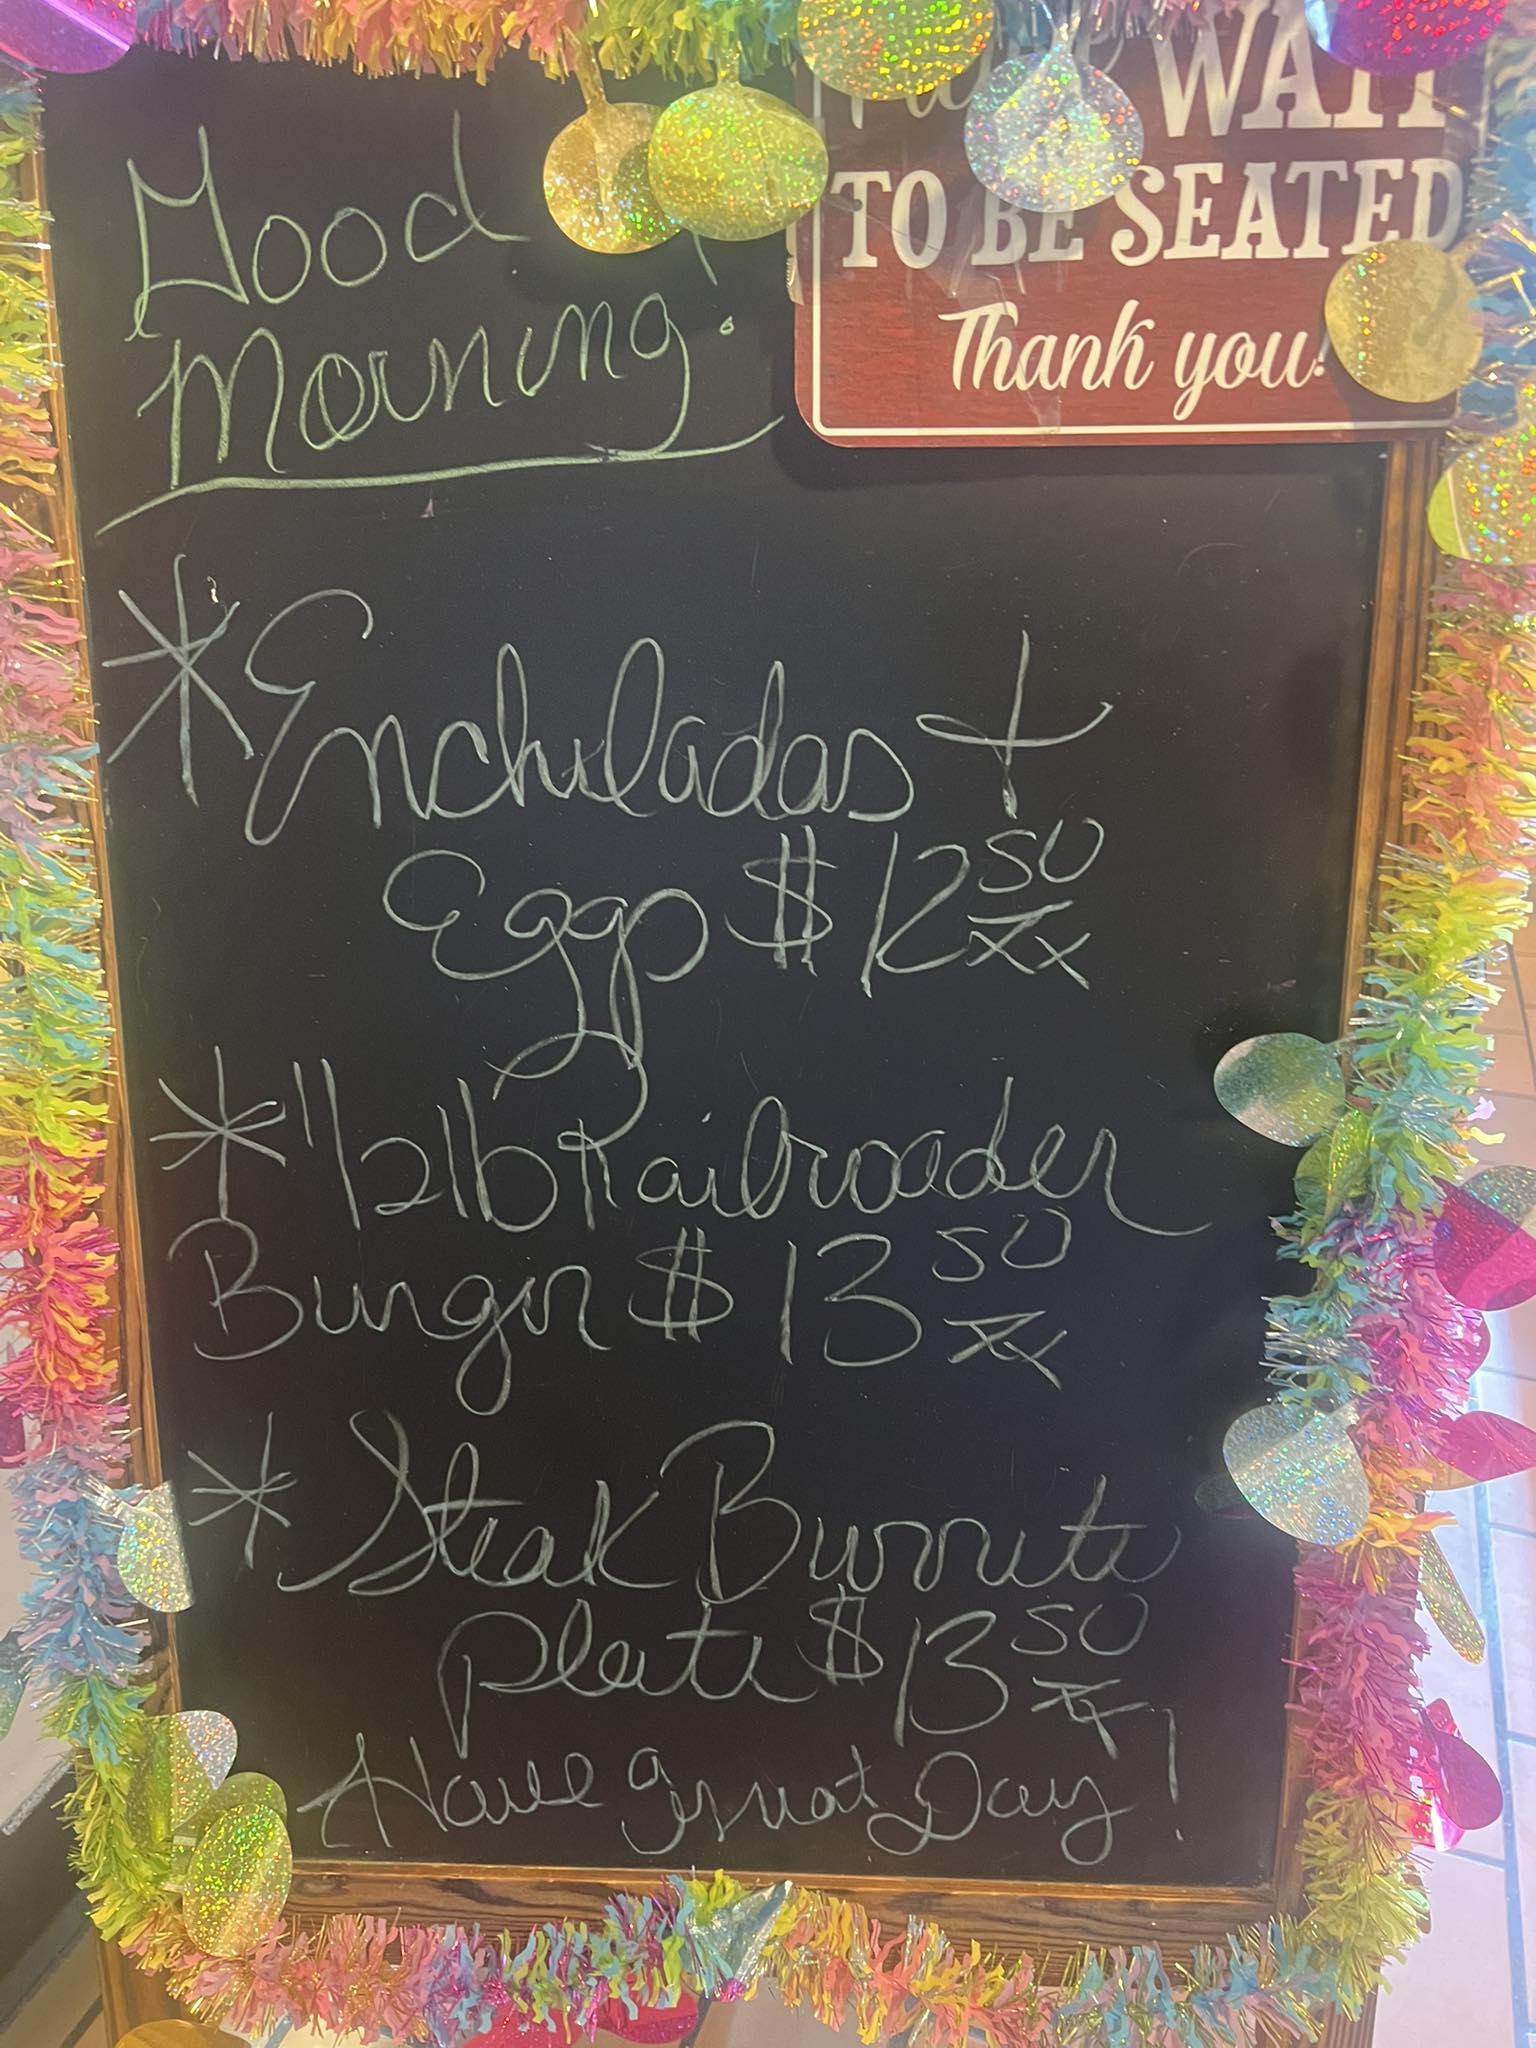 Good
Morning!
WAIT
TO BE SEATED
Thank you!
* Enchiladas +
Eggs $12 50/xx
* 1/2 lb Railroader
Burger $13 50/xx
* Steak Burrito
Plate $13 50/xx
Have great Day!